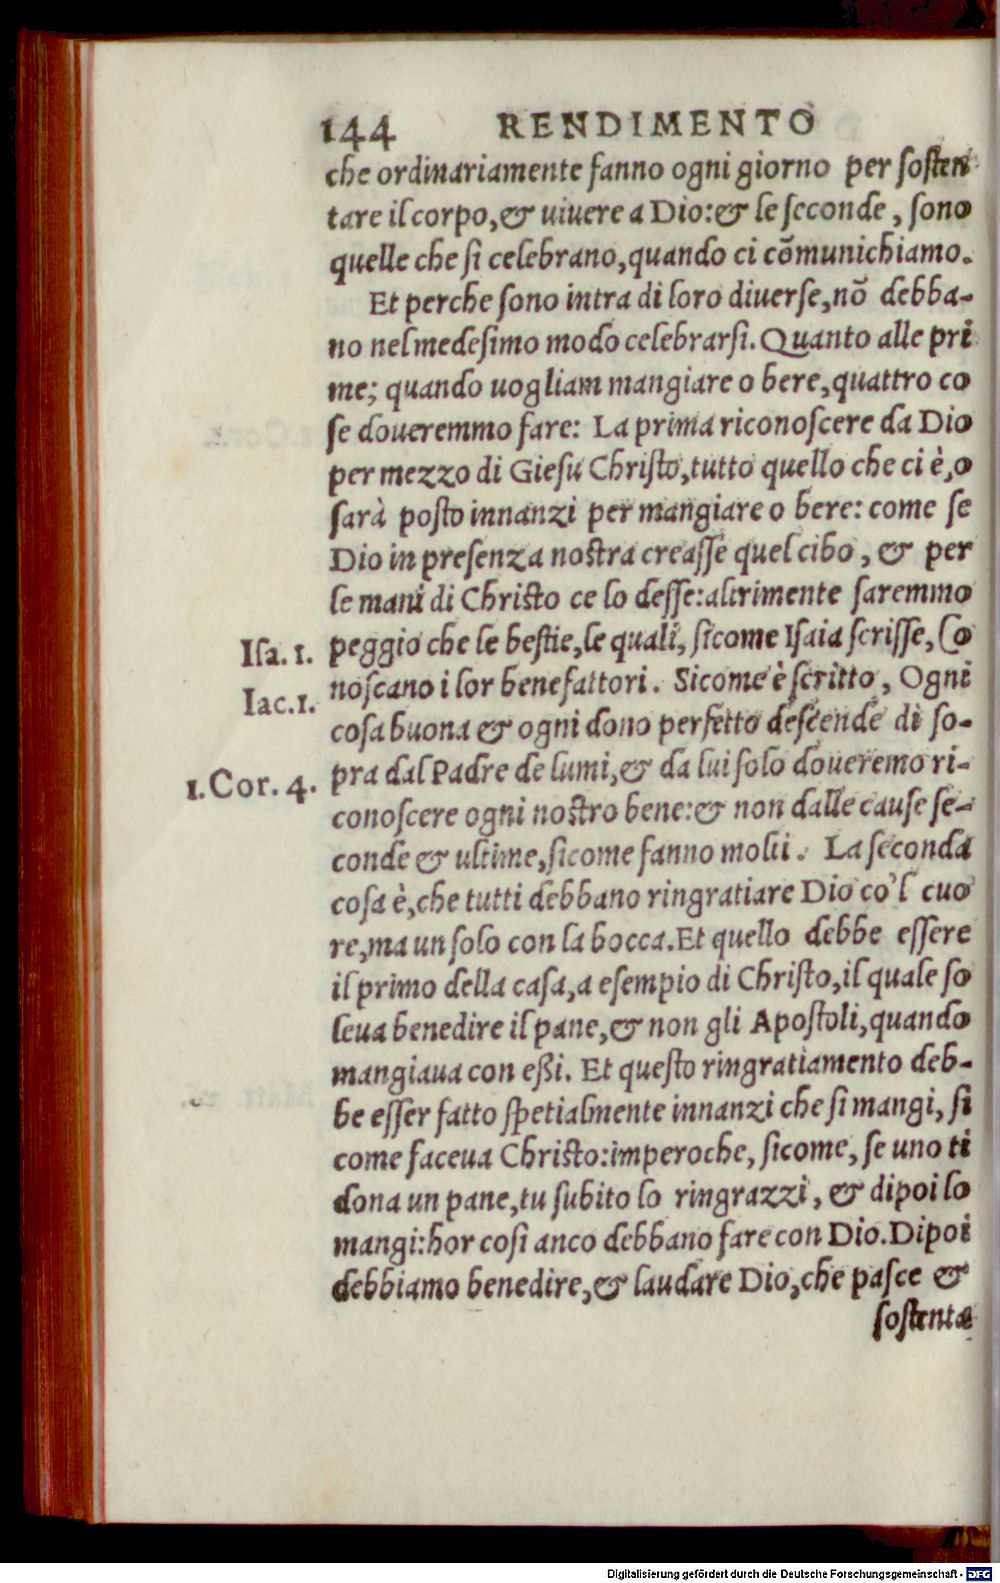 144 RENDIMENTO
che ordinariamente fanno ogni giorno per ſoſten
tare il corpo, & uiuere a Dio: & le ſeconde, ſono
quelle che ſi celebrano, quando ci cõmunichiamo.
Et perche ſono intra di loro diuerſe, nõ debba-
no nel medeſimo modo celebrarſi. Quanto alle pri
me; quando uogliam mangiare o bere, quattro co
ſe doueremmo fare: La prima riconoſcere da Dio
per mezzo di Gieſu Chriſto, tutto quello che ci è, o
ſarà poſto innanzi per mangiare o bere: come ſe
Dio in preſenza noſtra creaſſe quel cibo, & per
le mani di Chriſto ce lo deſſe: altrimente ſaremmo
Iſa. 1. peggio che le beſtie, le quali, ſicome Iſaia ſcriſſe, Co
Iac. 1. noſcano i lor benefattori. Sicome è ſcritto, Ogni
coſa buona & ogni dono perfetto deſcende di ſo-
1. Cor. 4. pra dal Padre de lumi, & da lui ſolo doueremo ri-
conoſcere ogni noſtro bene: & non dalle cauſe ſe-
conde & ultime, ſicome fanno molti. La ſeconda
coſa è, che tutti debbano ringratiare Dio co'l cuo
re, ma un ſolo con la bocca. Et quello debbe eſſere
il primo della caſa, a eſempio di Chriſto, il quale ſo
leua benedire il pane, & non gli Apoſtoli, quando
mangiaua con eßi. Et queſto ringratiamento deb-
be eſſer fatto ſpetialmente innanzi che ſi mangi, ſi
come faceua Chriſto: imperoche, ſicome, ſe uno ti
dona un pane, tu ſubito lo ringrazzi, & dipoi lo
mangi: hor coſi anco debbano fare con Dio. Dipoi
debbiamo benedire, & laudare Dio, che paſce &
ſoſtenta
Digitalisierung gefördert durch die Deutsche Forschungsgemeinschaft - DFG